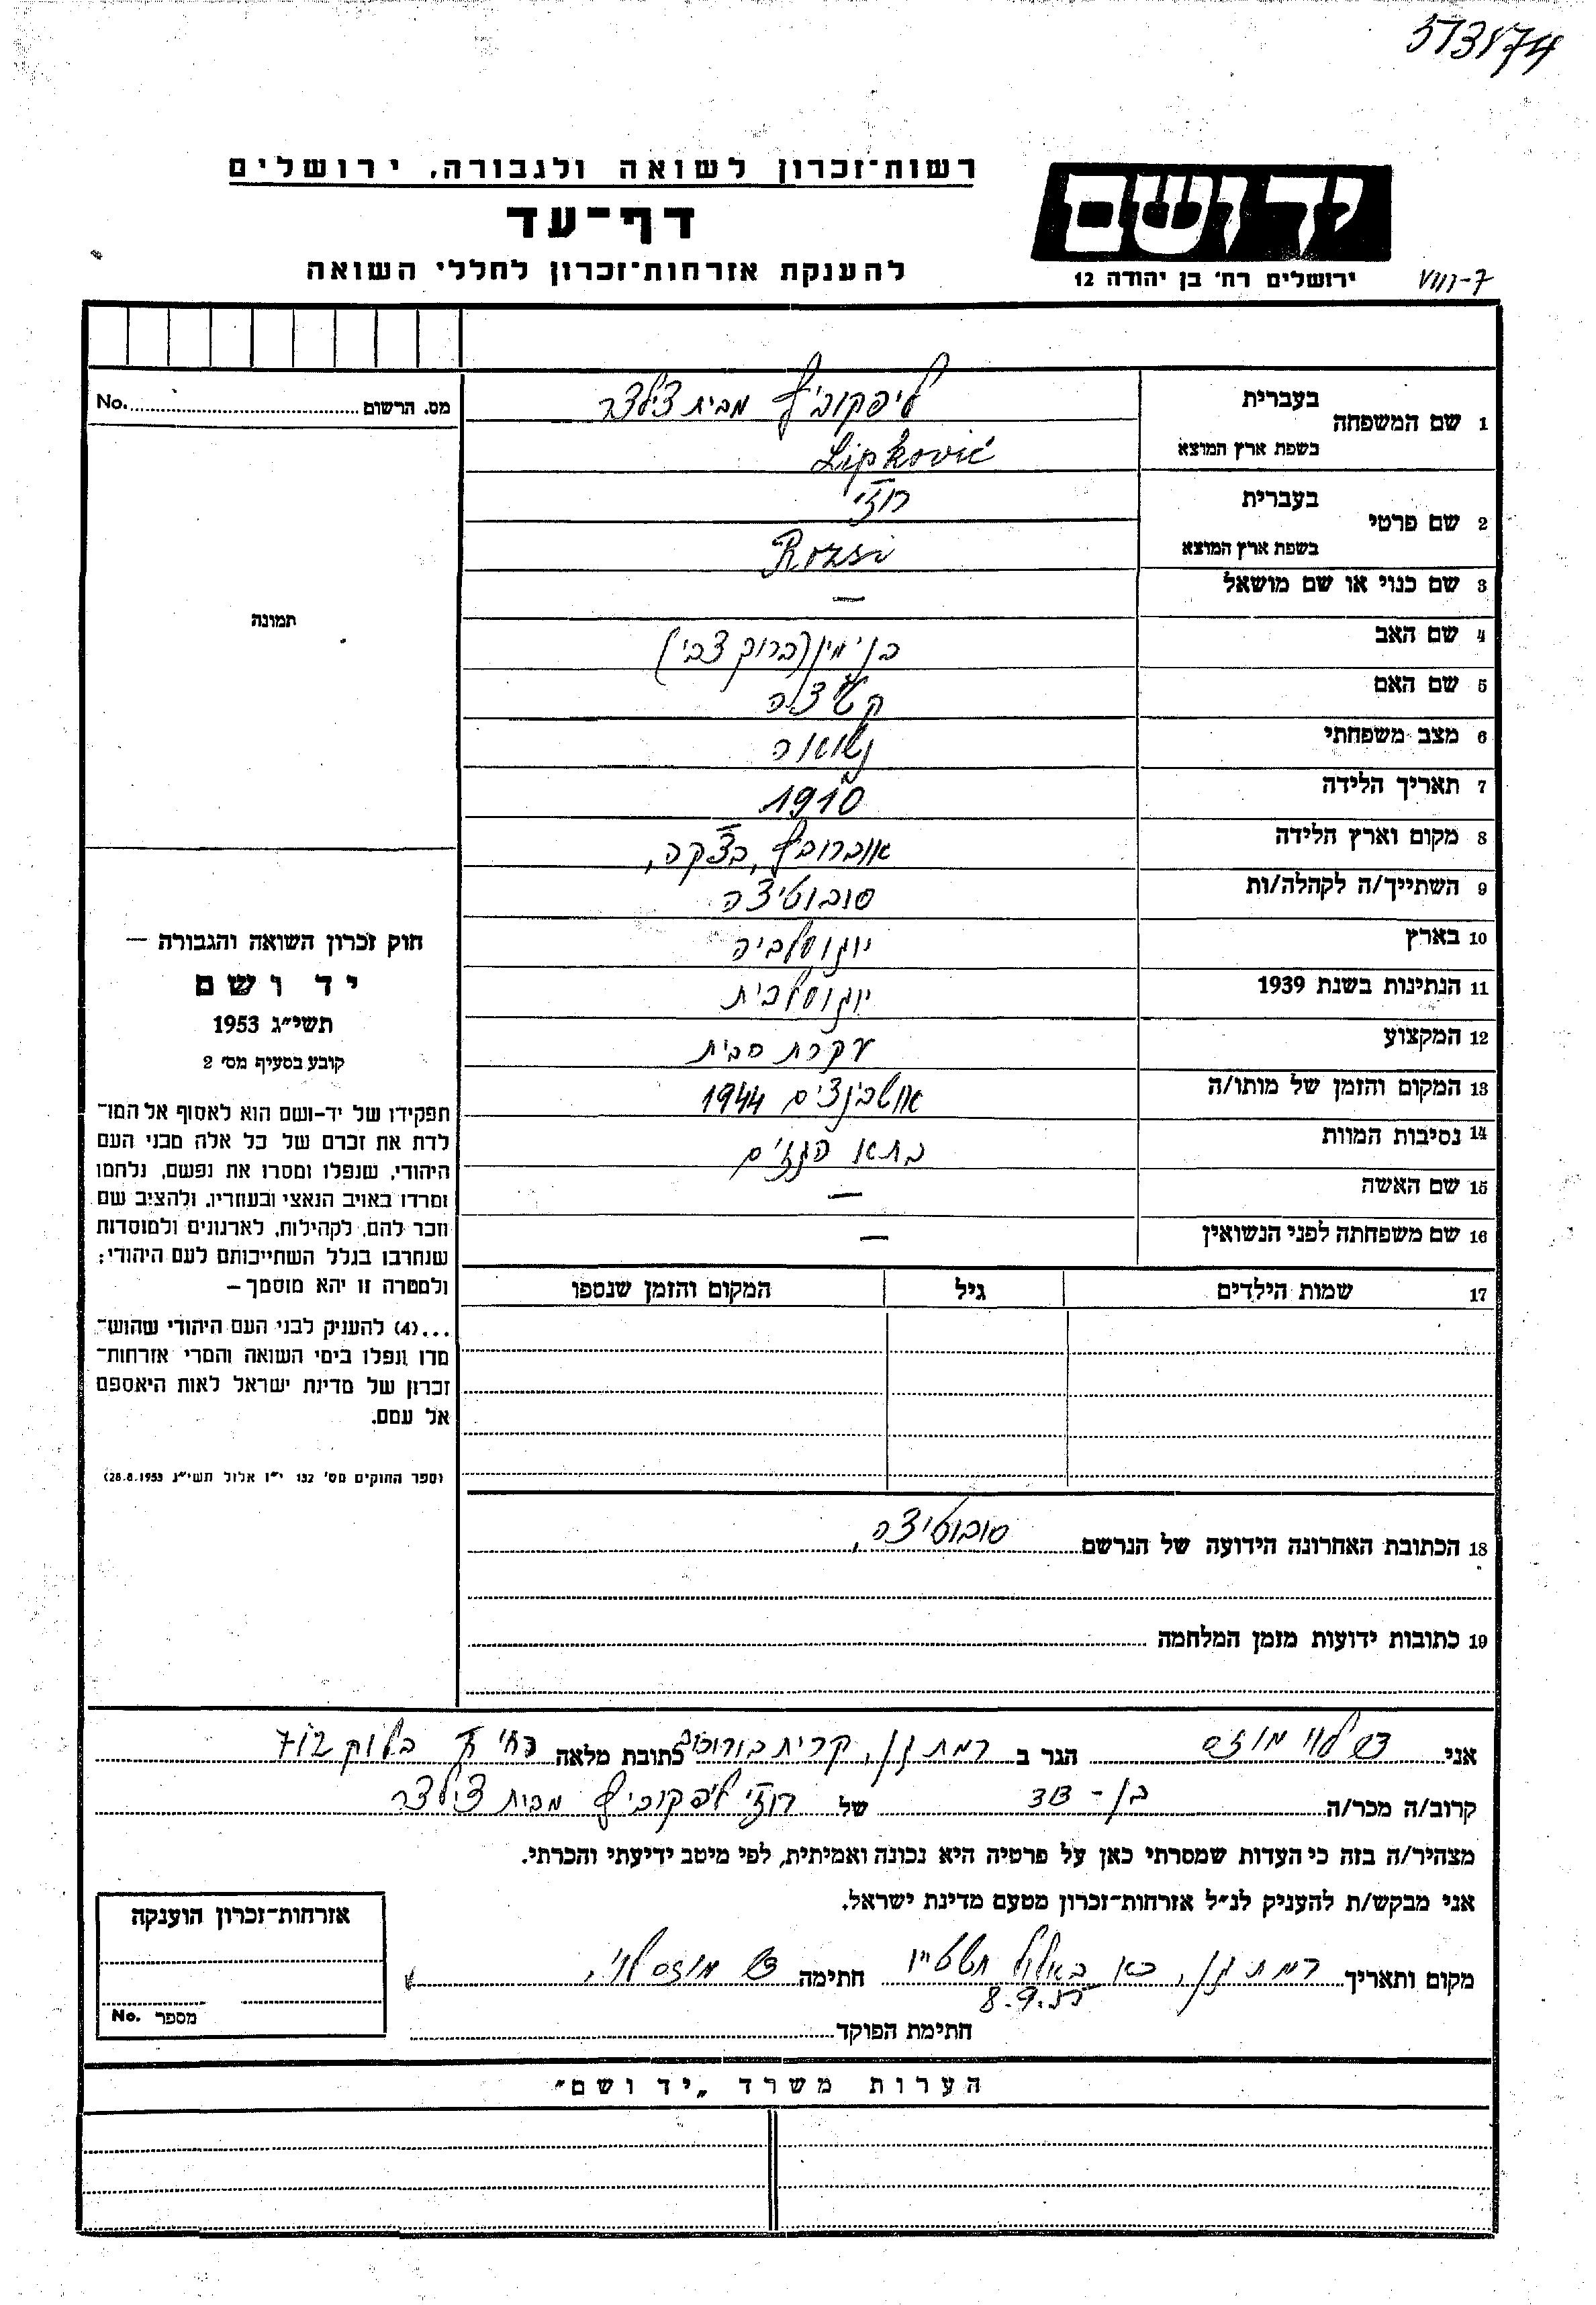 573874
רשות-זכרון לשואה ולגבורה, ירושלים
דף-עד
להענקת אזרחות-זכרון לחללי השואה
יד ושם
ירושלים רח' בן יהודה 12
VIII-7
מס. הרשום No.
תמונה
חוק זכרון השואה והגבורה —
יד ושם
תשי״ג 1953
קובע בסעיף מס׳ 2
תפקידו של יד-ושם הוא לאסוף אל המו־
לדת את זכרם של כל אלה מבני העם
היהודי, שנפלו ומסרו את נפשם, נלחמו
ומרדו באויב הנאצי ובעוזריו, ולהציב שם
וזכר להם, לקהילות, לארגונים ולמוסדות
שנחרבו בגלל השתייכותם לעם היהודי;
ולמטרה זו יהא מוסמך —
...(4) להעניק לבני העם היהודי שהוש־
מדו ונפלו בימי השואה והמרי אזרחות־
זכרון של מדינת ישראל לאות היאספם
אל עמם.
(ספר החוקים מס׳ 132 י״ז אלול תשי״ג 28.8.1953)
1 שם המשפחה בעברית ליפקוביץ מבית צילצר
בשפת ארץ המוצא Lipković
2 שם פרטי בעברית רוז'י
בשפת ארץ המוצא Rozsi
3 שם כנוי או שם מושאל —
4 שם האב בנימין (ברוך צבי)
5 שם האם
6 מצב משפחתי נשואה
7 תאריך הלידה 1910
8 מקום וארץ הלידה אוברוביץ, בצ'קה,
9 השתייך/ה לקהלה/ות סובוטיצה
10 בארץ יוגוסלביה
11 הנתינות בשנת 1939 יוגוסלבית
12 המקצוע עקרת הבית
13 המקום והזמן של מותו/ה אושבינצים 1944
14 נסיבות המוות בתא הגזים
15 שם האשה —
16 שם משפחתה לפני הנשואין —
17 שמות הילדים גיל המקום והזמן שנספו
18 הכתובת האחרונה הידועה של הנרשם סובוטיצה,
19 כתובות ידועות מזמן המלחמה
אני לוי מוזס הגר ב רמת גן, קרית בורוכוב כתובת מלאה בלוק 7
קרוב/ה מכר/ה בן-דוד של רוז'י ליפקוביץ מבית צילצר
מצהיר/ה בזה כי העדות שמסרתי כאן על פרטיה היא נכונה ואמיתית, לפי מיטב ידיעתי והכרתי.
אני מבקש/ת להעניק לנ״ל אזרחות-זכרון מטעם מדינת ישראל.
מקום ותאריך רמת גן, כא באלול תשט״ו חתימה מוזס לוי,
8.9.55
חתימת הפוקד
אזרחות-זכרון הוענקה
מספר No.
הערות משרד „יד ושם״